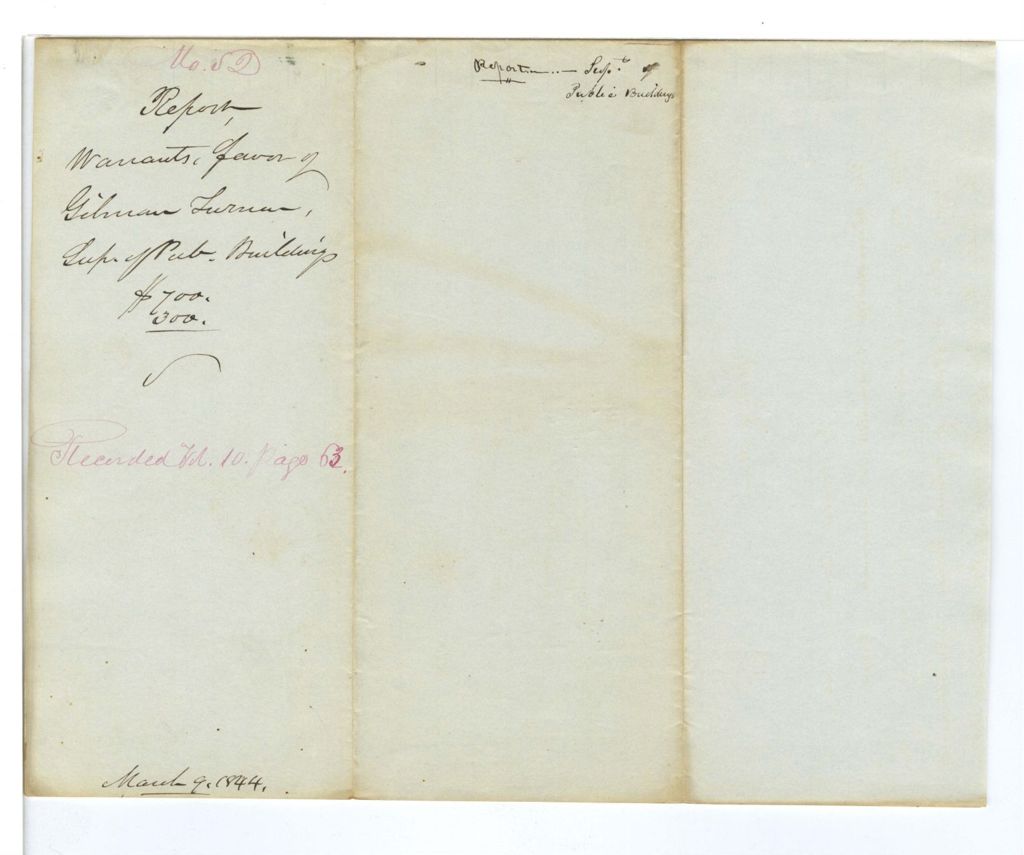 No. 52
Report,
Warrants, favor of
Gilman Turner,
Sup. of Pub. Buildings
$700.
300.
Recorded Vol. 10. Page 63.
March 9. 1844.
Report — Supt. of
Public Buildings